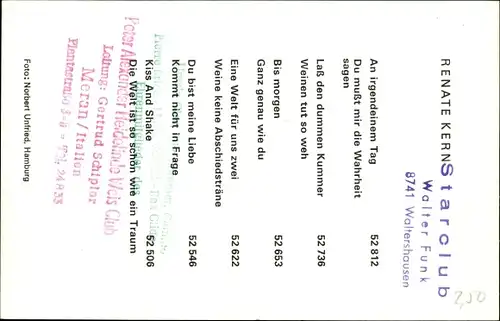 RENATE KERN
Starclub
Walter Funk
8741 Waltershausen
An irgendeinem Tag
Du mußt mir die Wahrheit
sagen 52 812
Laß den dummen Kummer
Weinen tut so weh 52 736
Bis morgen
Ganz genau wie du 52 653
Eine Welt für uns zwei
Weine keine Abschiedsträne 52 622
Du bist meine Liebe
Kommt nicht in Frage 52 546
Kiss And Shake
Die Welt ist so schön wie ein Traum 52 506
Peter Alexander Heidelinde Weis Club
Leitung: Gertrud Schipler
Meran/Italien
Foto: Norbert Unfried, Hamburg
2,50